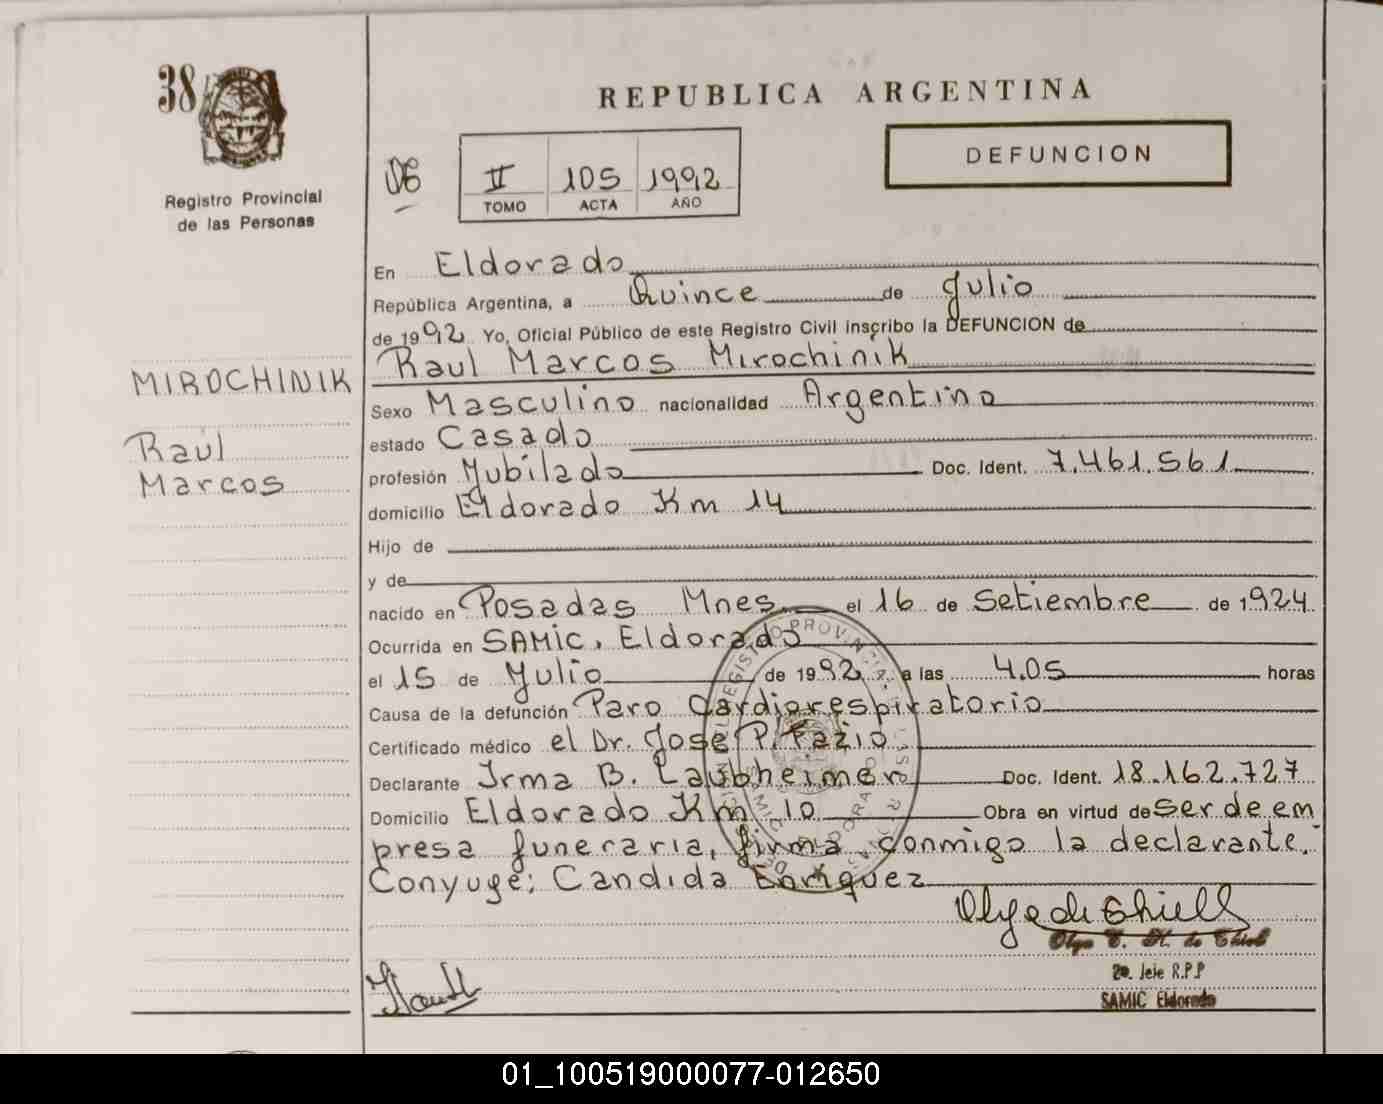 38
REPUBLICA ARGENTINA
DEFUNCION
Registro Provincial
de las Personas
06
II 105 1992
TOMO ACTA AÑO
En Eldorado
República Argentina, a Quince de Julio
de 1992 Yo, Oficial Público de este Registro Civil inscribo la DEFUNCION de
Raul Marcos Mirochinik
MIROCHINIK
Raúl
Marcos
Sexo Masculino nacionalidad Argentino
estado Casado
profesión Jubilado Doc. Ident. 7.461.561
domicilio Eldorado Km 14
Hijo de
y de
nacido en Posadas Mnes el 16 de Setiembre de 1924
Ocurrida en SAMIC, Eldorado
el 15 de Julio de 1992 a las 4.05 horas
Causa de la defunción Paro Cardiorespiratorio
Certificado médico el Dr. Jose P. Fazio
Declarante Irma B. Laubheimer Doc. Ident. 18.162.727
Domicilio Eldorado Km 10 Obra en virtud de ser de em
presa funeraria, firma conmigo la declarante.
Conyuge: Candida Enriquez
Olga de Thiell
Olga T. H. de Thiel
2a. Jefe R.P.P
SAMIC Eldorado
01_100519000077-012650